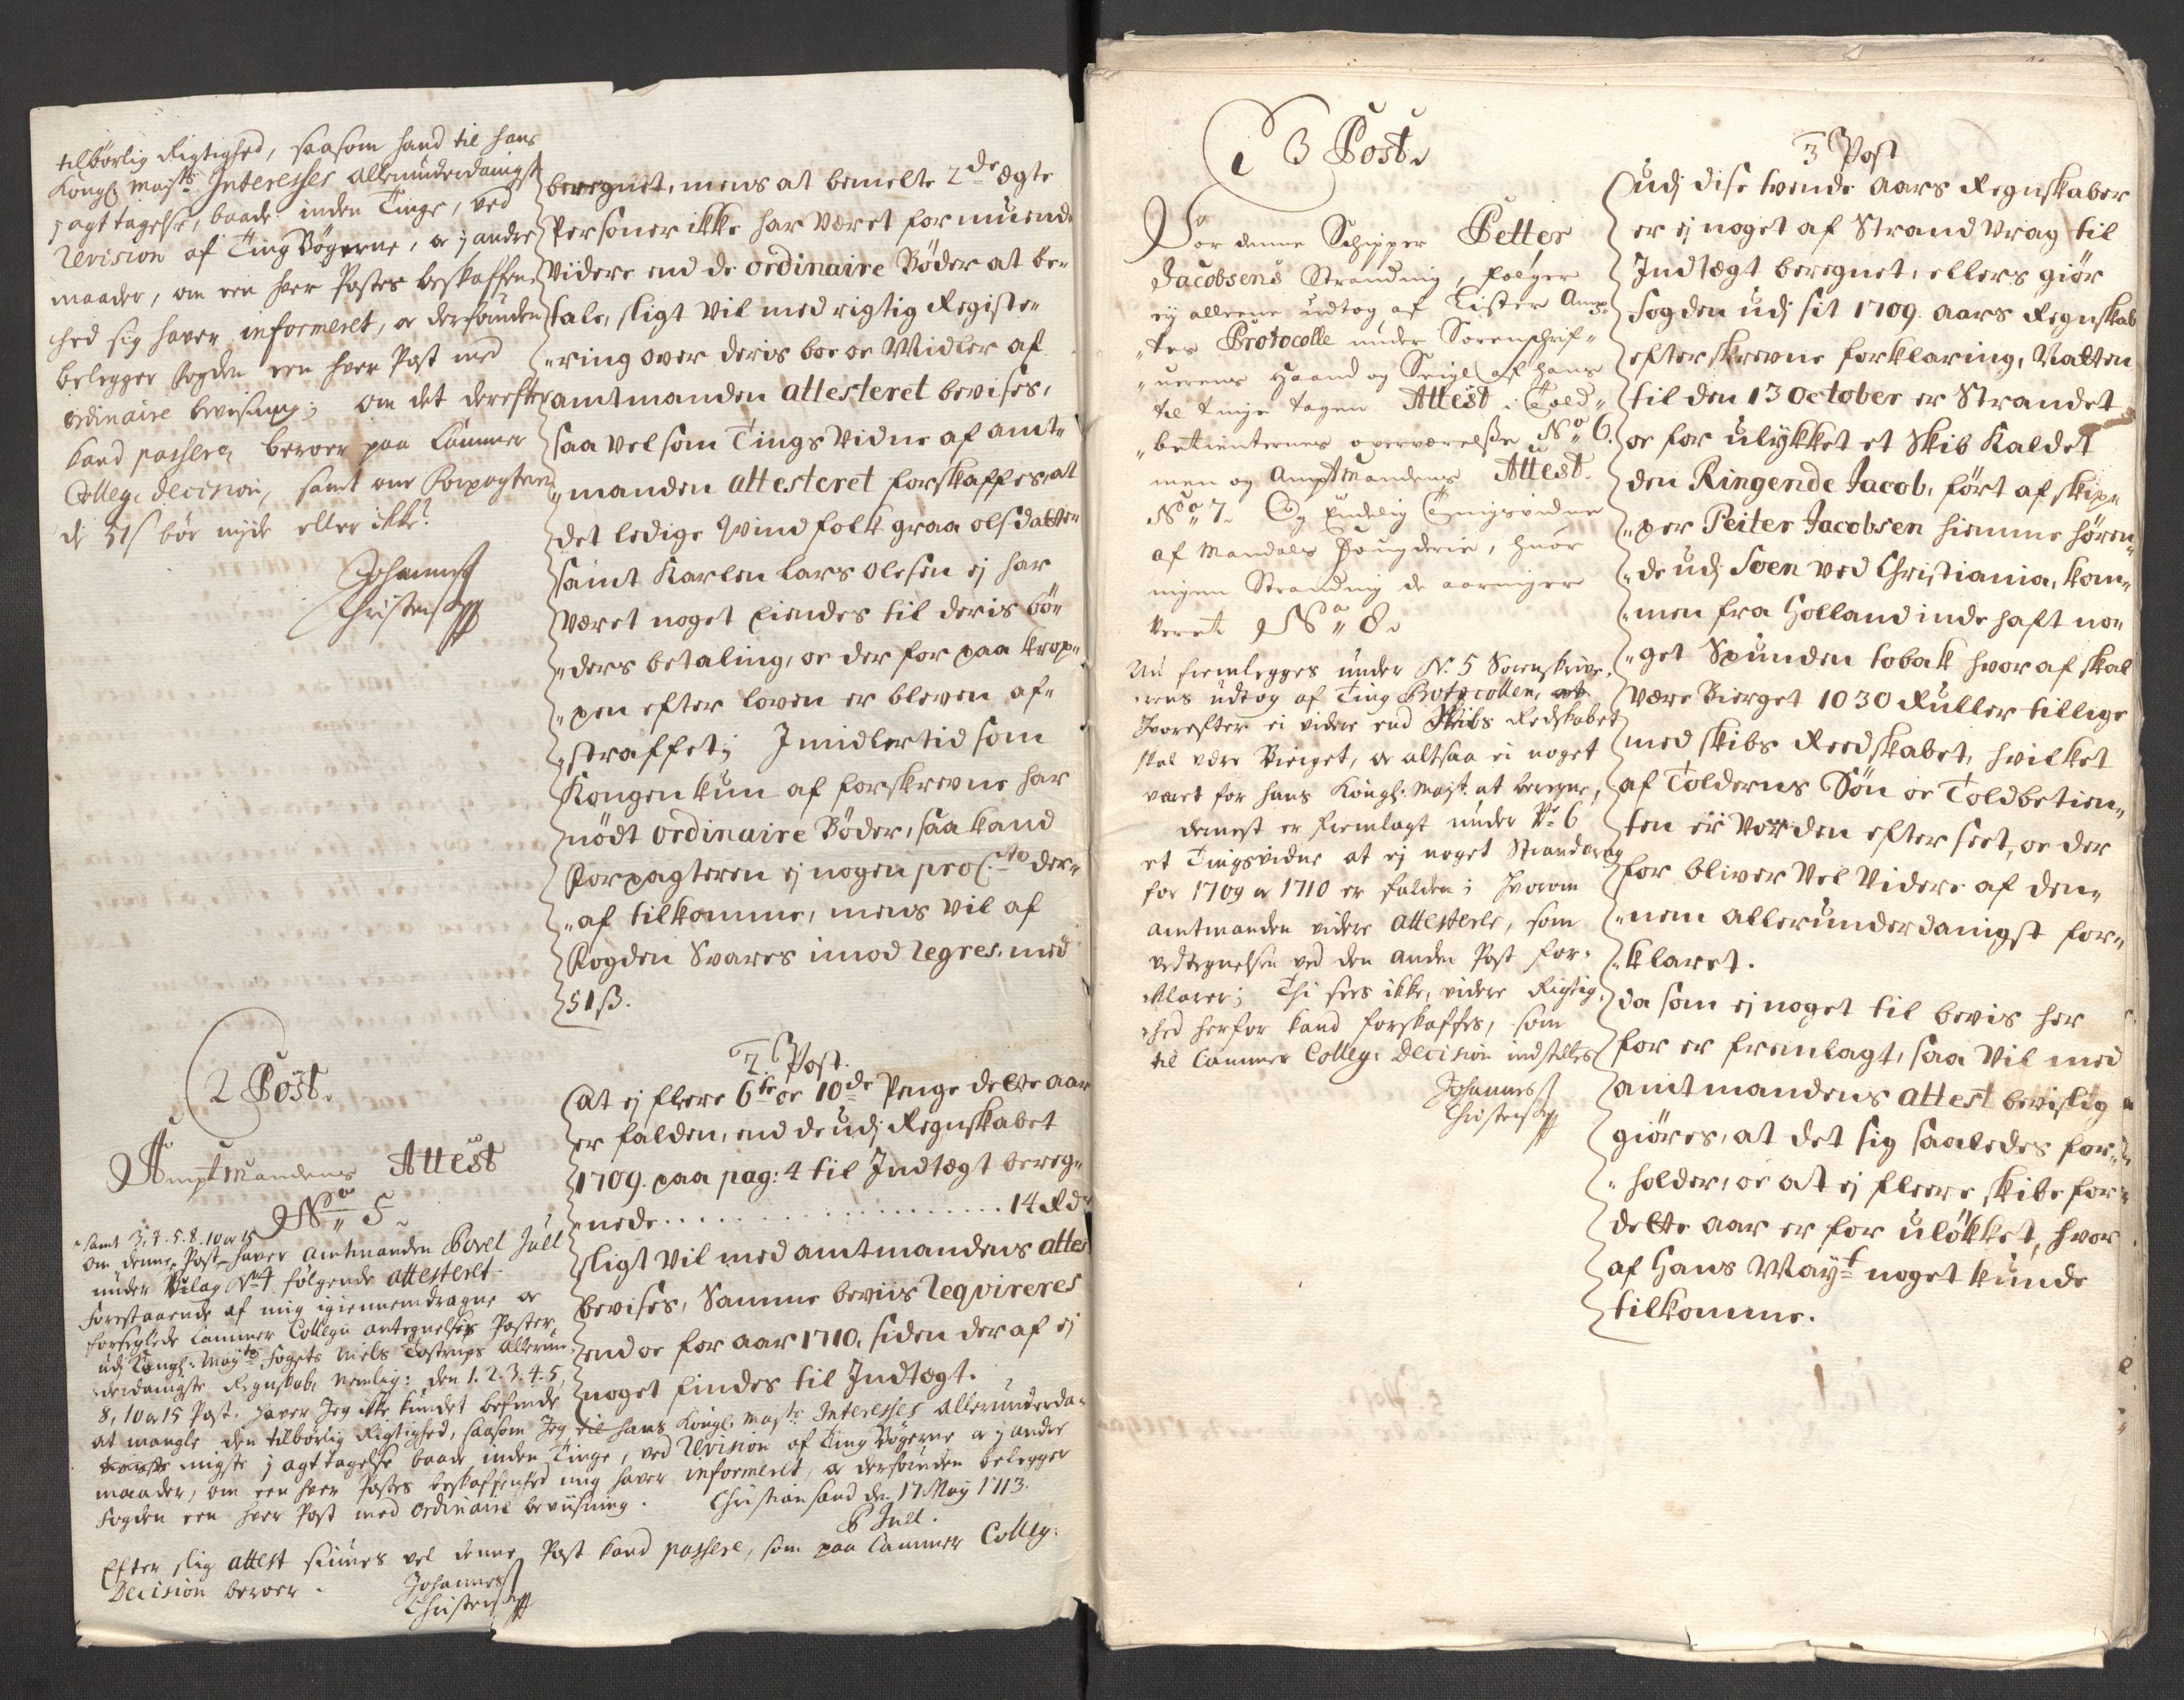 tilbørlig Rigtighed, saasom hand til hans
Kongl: Maj:ts Interesses allerunderdanigst
j agttagelse, baade inden Tinge, ved
Revision af Ting Bøgerne, oc j andre
maader, om een hver Postes beskaffen-
hed sig haver informeret, oc dersuinden
belegger Fogden een hver Post med
ordinaire beviisning; om det derefter
kand passere, beroer paa Cammer
Colleg: decision, samt om Forpagteren
de 51 ß bør nyde eller ikke?
Johannes
Christens
beregnet, mens at bemelte 2de ægte
Personer ikke har været formuende
Videre end de ordinaire Bøder at be-
tale, sligt Vil med rigtig Registe-
"ring over deris boe oc Midler af
amtmanden attesteret bevises,
saa vel som Tings Vidne af amt-
"manden attesteret forskaffes, at
det ledige Qvindfolk graa olsdatter
samt Karlen Lars Olesen ej har
Været noget Eiendes til deris bø-
"ders betaling, oc der for paa krop-
"pen efter loven er bleven af-
"straffet; Imidlertid som
Kongen kun af forskrevne har
nødt ordinaire Bøder, saa kand
Forpagteren ej nogen pro C:to der-
"af tilkomme, mens vil af
Fogden Svares imod Regres. med
51 ß.
2 Post.
Amptmandens Attest
No 5
samt 3. 4. 5. 8. 10 oc 15
om denne Post haver Amtmanden Povel Juell
under Bilag No 4 følgende attesteret
Forestaaende af mig igiennemdragne oc
forseglede Cammer Collegii antegnelses Poster
udj Kongl: May:ts Fogets Niels Tostrups Allerun-
derdanigste Regnskab, Nemlig: den 1. 2. 3. 4. 5,
8, 10 oc 15 Post, haver Jeg ikke kundet befinde
at mangle den tilbørlig Rigtighed, saasom Jeg til hans Kongl: Maj:ts Interesses Allerunderda-
nigste j agttagelse baade inden Tinge, ved Revision af Ting Bøgerne oc j andre
maader, om een hver Postes beskaffenhed mig haver informeret, oc dersuinden belegger
Fogden een hver Post med ordinaire beviisning. Christiansand den 17 May 1713.
P Juell.
Efter slig attest siunes vel denne Post kand passere, som paa Cammer Colleg:
Decision beroer.
Johannes
Christens
2. Post.
At ej flere 6te oc 10de Penge dette aar
er falden, end de udj Regnskabet
1709. paa pag: 4 til Indtægt bereg-
"nede . . . . . . . . . . . . . . . 14 Rdr
sligt Vil med amtmandens attest
bevises, Samme beviis Reqvireres
end oc for aar 1710, siden der af ej
noget findes til Indtægt.
3 Post.
For denne Schipper Petter
Jacobsens Stranding, følger
ey alleene udtog af Lister Amp-
"tes Protocolle under Sorenschrif-
"uerens Haand og Seigl af hans
til tinge tagen Attest i Told-
"betienternes overværelsse No 6.
men og Amptmandens Attest.
No 7. Og Endelig Tingsvidne
af Mandals Fougderie, huor
ingen Stranding de aaringer
veret No 8.
Nu fremlegges under No. 5 Sorenskrive-
rens udtog af Ting Protocollen,
hvorefter ei videre end Skibs Redskabet
skal være Bierget, oc altsaa ei noget
været for hans Kongl: Mayt. at beregne,
dernest er fremlagt under No 6
et Tingsvidne at ej noget Strandvrag
for 1709 oc 1710 er falden; hvorom
amtmanden videre attesterer, som
vedtegnelsen ved den anden Post for-
klarer; Thi sees ikke, videre Rigtig-
hed herfor kand forskaffes, som
til Cammer Colleg: Decision indstilles
Johannes
Christens
3 Post
Udj dise tvende Aars Regnskaber
er ej noget af Strand Vrag til
Indtægt beregnet, ellers giør
Fogden udj sit 1709. aars Regnskab
efterskrevne forklaring, Natten
til den 13 October er Strandet
oc forulykket et Skib Kaldet
den Ringende Jacob, ført af skip-
"per Peiter Jacobsen hiemme høren-
"de udj Soen ved Christiania, kom-
"men fra Holland inde haft no-
"get Spunden tobak hvor af skal
Være Bierget 1030 Ruller tillige
med skibs Reedskabet, hvilket
af Tolderns Søn oc Toldbetien-
ten er Vorden efterseet, oc der
for bliver Vel Videre af den-
"nem allerunderdanigst for-
"klaret.
da som ej noget til bevis her
for er fremlagt, saa Vil med
amtmandens attest bevislig
giøres, at det sig saaledes for-
"holder, oc at ej fleere skibe for
dette aar er for uløkket, hvor
af Hans May:t noget kunde
tilkomme.